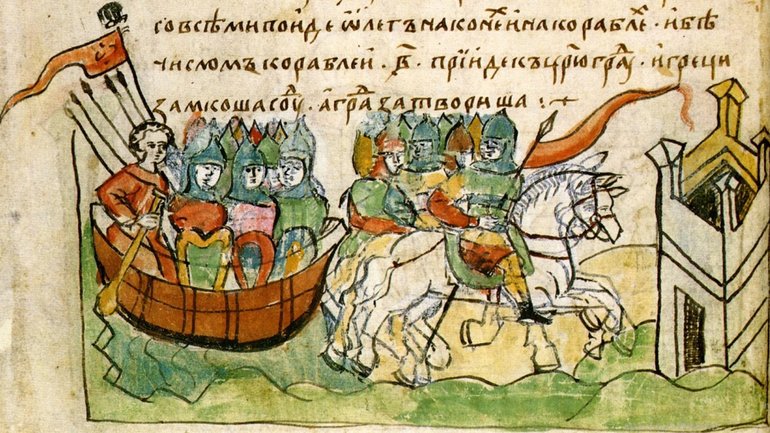 со всѣми поиде ѡлегъ на конеⷯ и на кораблеⷯ · и бѣ
числомъ кораблеи · в҃ · прїиде къ црⷭ҇юграⷣу · и греци
замкоша соуⷣ · а граⷣ затвориша :